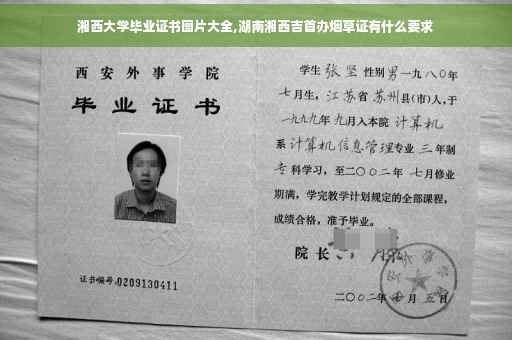 湘西大学毕业证书图片大全,湖南湘西吉首办烟草证有什么要求
西安外事学院
毕业证书
证书编号:0209130411
学生 张坚 性别男 一九八〇年
七月生，江苏省 苏州县(市)人,于
一九九九年 九月入本院 计算机
系 计算机信息管理专业 三年制
专科学习，至二〇〇二年 七月修业
期满，学完教学计划规定的全部课程，
成绩合格，准予毕业。
院长
二〇〇二年 月五日